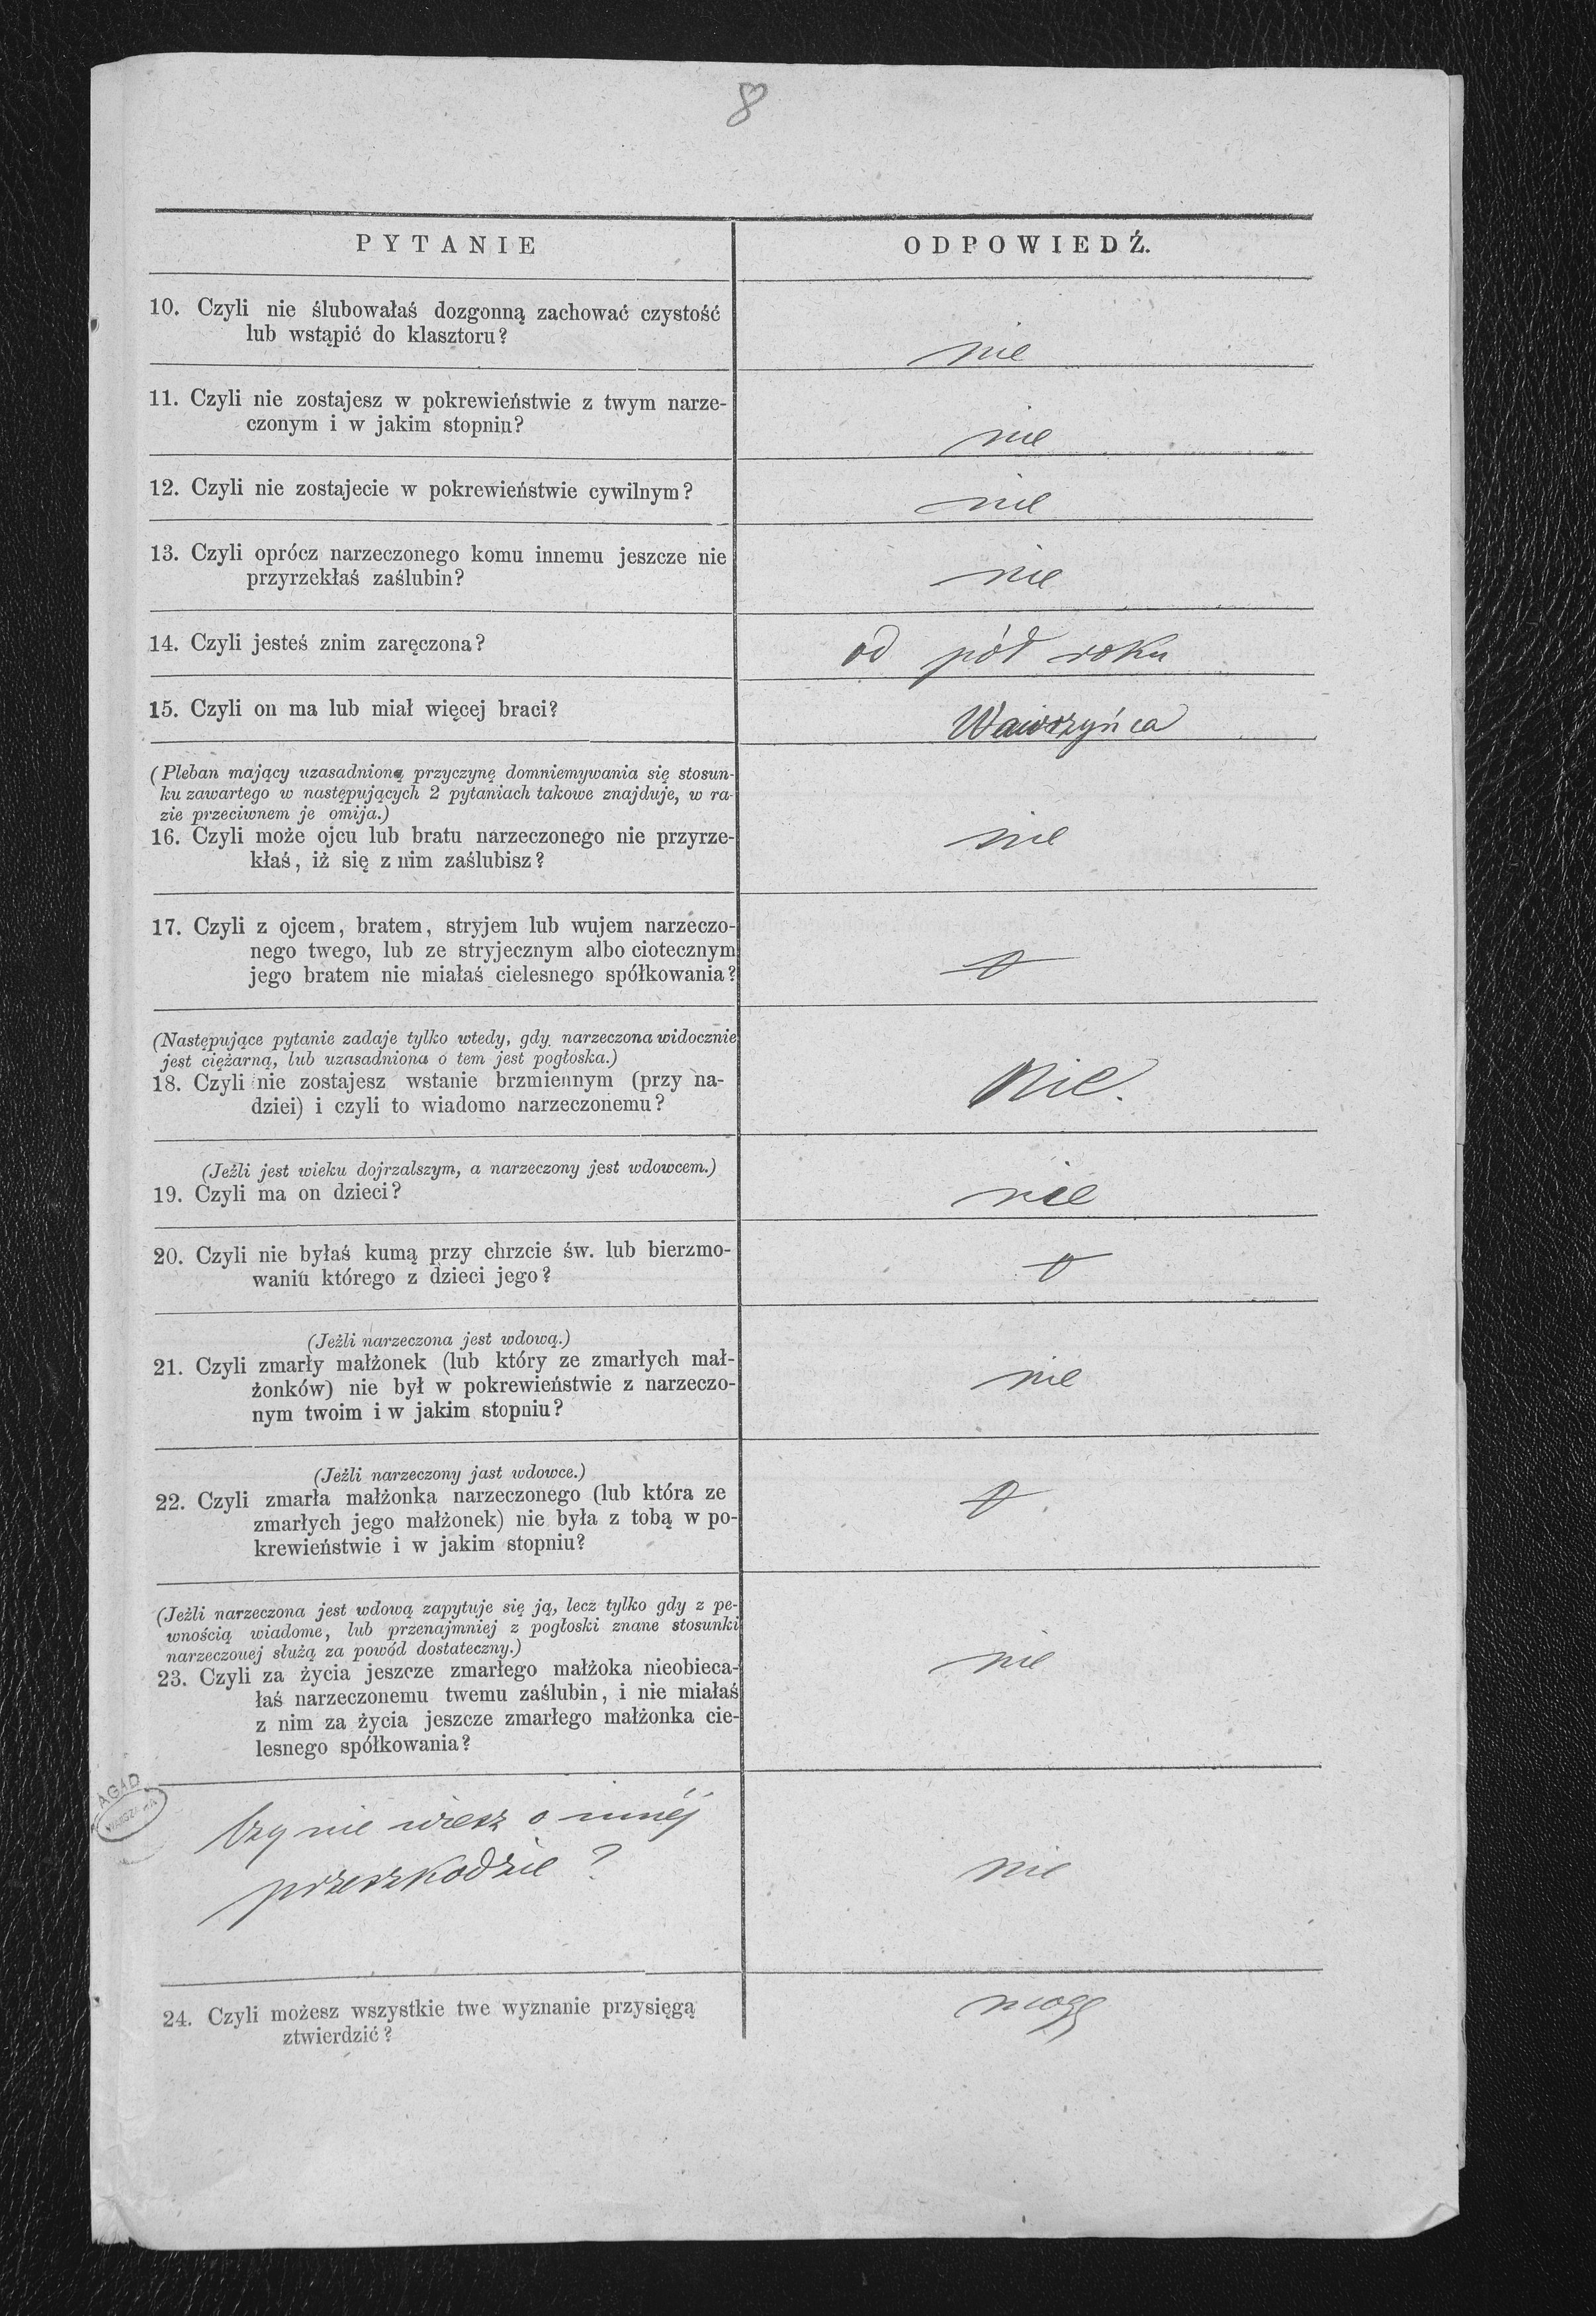 8
PYTANIE
ODPOWIEDŹ.
10. Czyli nie ślubowałaś dozgonną zachować czystość
lub wstąpić do klasztoru?
nie
11. Czyli nie zostajesz w pokrewieństwie z twym narze-
czonym i w jakim stopniu?
nie
12. Czyli nie zostajecie w pokrewieństwie cywilnym?
nie
13. Czyli oprócz narzeczonego komu innemu jeszcze nie
przyrzekłaś zaślubin?
nie
14. Czyli jesteś znim zaręczona?
od pół roku
15. Czyli on ma lub miał więcej braci?
Wawrzyńca
(Pleban mający uzasadnioną przyczynę domniemywania się stosun-
ku zawartego w następujących 2 pytaniach takowe znajduje, w ra-
zie przeciwnem je omija.)
16. Czyli może ojcu lub bratu narzeczonego nie przyrze-
kłaś, iż się z nim zaślubisz?
nie
17. Czyli z ojcem, bratem, stryjem lub wujem narzeczo-
nego twego, lub ze stryjecznym albo ciotecznym
jego bratem nie miałaś cielesnego spółkowania?
(Następujące pytanie zadaje tylko wtedy, gdy narzeczona widocznie
jest ciężarną, lub uzasadniona o tem jest pogłoska.)
18. Czyli nie zostajesz wstanie brzmiennym (przy na-
dziei) i czyli to wiadomo narzeczonemu?
Nie.
(Jeźli jest wieku dojrzalszym, a narzeczony jest wdowcem.)
19. Czyli ma on dzieci?
nie
20. Czyli nie byłaś kumą przy chrzcie św. lub bierzmo-
waniu którego z dzieci jego?
(Jeźli narzeczona jest wdową.)
21. Czyli zmarły małżonek (lub który ze zmarłych mał-
żonków) nie był w pokrewieństwie z narzeczo-
nym twoim i w jakim stopniu?
nie
(Jeźli narzeczony jast wdowce.)
22. Czyli zmarła małżonka narzeczonego (lub która ze
zmarłych jego małżonek) nie była z tobą w po-
krewieństwie i w jakim stopniu?
(Jeźli narzeczona jest wdową zapytuje się ją, lecz tylko gdy z pe-
wnością wiadome, lub przenajmniej z pogłoski znane stosunki
narzeczouej służą za powód dostateczny.)
23. Czyli za życia jeszcze zmarłego małżoka nieobieca-
łaś narzeczonemu twemu zaślubin, i nie miałaś
z nim za życia jeszcze zmarłego małżonka cie-
lesnego spółkowania?
nie
AGAD
WARSZAWA
Czy nie wiesz o innéj
przeszkodzie?
nie
24. Czyli możesz wszystkie twe wyznanie przysięgą
ztwierdzić?
mogę